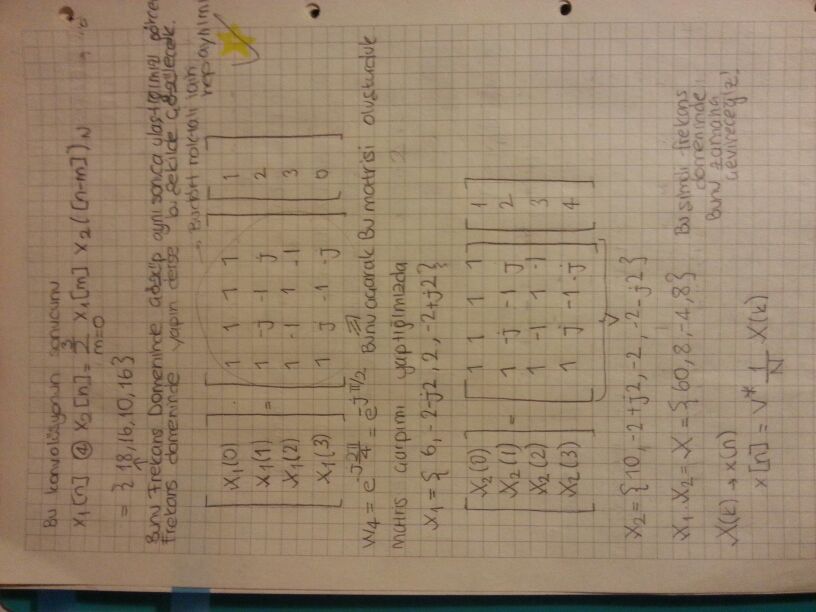 Bu konvolüsyonun sonucunu
x₁[n] ④ x₂[n] = 3 Σ m=0 x₁[m] x₂([n-m])N
= {18, 16, 10, 16}
Bunu Frekans Domeninde çözüp aynı sonuca ulaştığımızı
Frekans domeninde yapın derse bu şekilde çözülecek.
→ Bu dört noktalı için hep aynı
[X₁(0) X₁(1) X₁(2) X₁(3)] = [1 1 1 1; 1 -j -1 j; 1 -1 1 -1; 1 j -1 -j] [1 2 3 0]
W₄ = e^(-j2π/4) = e^(-jπ/2) Bunu açarak Bu matrisi oluşturduk
Matris çarpımı yaptığımızda
X₁ = {6, -2-j2, 2, -2+j2}
[X₂(0) X₂(1) X₂(2) X₂(3)] = [1 1 1 1; 1 -j -1 j; 1 -1 1 -1; 1 j -1 -j] [1 2 3 4]
X₂ = {10, -2+j2, -2, -2-j2}
X₁.X₂ = X = {60, 8, -4, 8}
Bu şimdi frekans domeninde
Bunu zamana çevireceğiz!
X(k) → x(n)
x[n] = V* 1/N X(k)